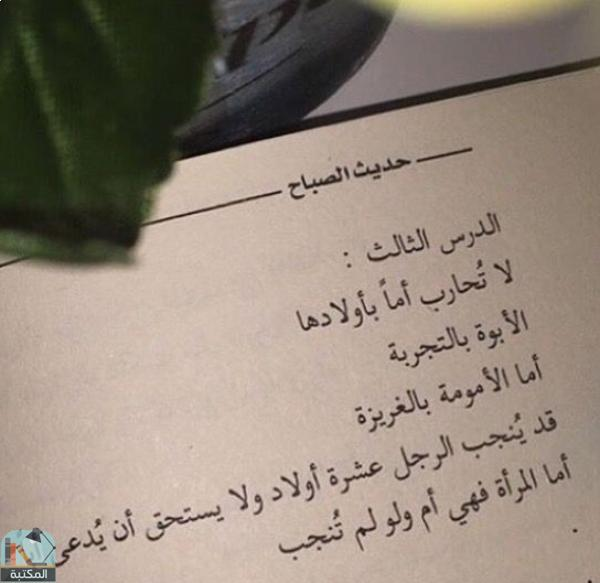 حديث الصباح
الدرس الثالث :
لا تُحارب أماً بأولادها
الأبوة بالتجربة
أما الأمومة بالغريزة
قد يُنجب الرجل عشرة أولاد ولا يستحق أن يُدعى
أما المرأة فهي أم ولو لم تُنجب
المكتبة